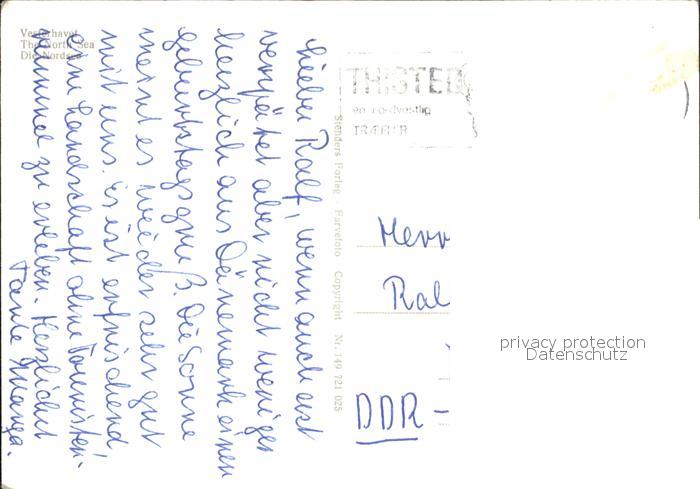 Vesterhavet
The North Sea
Die Nordsee
Lieber Ralf, wenn auch erst
verspätet aber nicht weniger
herzlich aus Dänemark einen
Geburtstagsgruß. Die Sonne
meint es wieder sehr gut
mit uns. Es ist erfrischend,
eine Landschaft ohne Touristen-
rummel zu erleben. Herzlichst
Tante
Stenders Forlag Farvefoto Copyright Nr. 149 721 025
THISTED
en nordvestlig
TRÆFFER
Herr
Ral
DDR-
privacy protection
Datenschutz